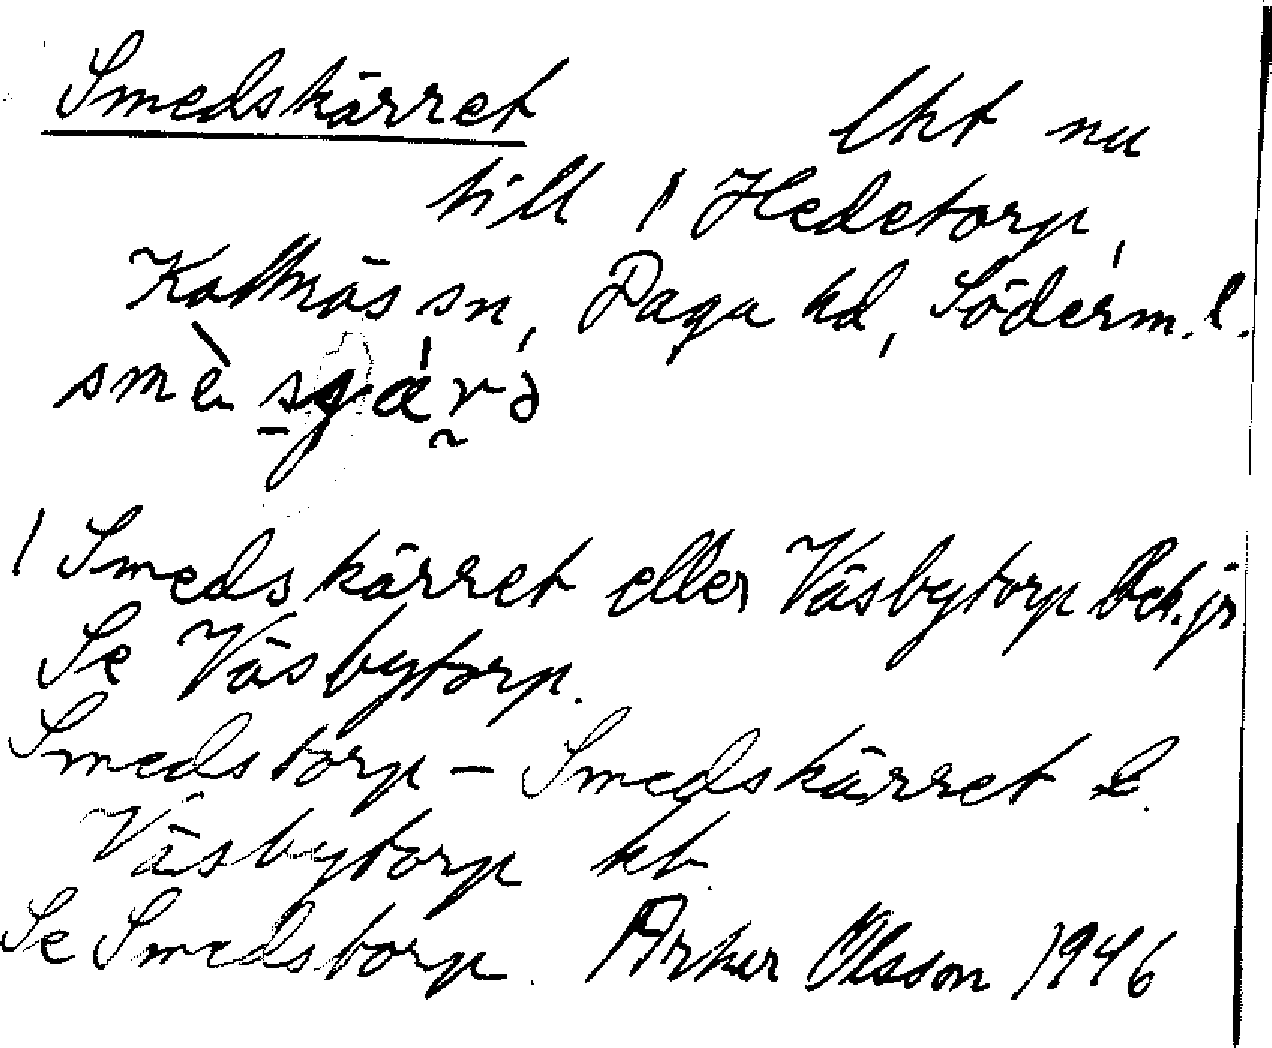 Smedskärret lht nu
till 1 Hedetorp,
Kattnäs sn, Daga hd, Söderm. l.
smèsɟæ̀rə
1 Smedskärret eller Väsbytorp Eck. jr
Se Väsbytorp.
Smedstorp – Smedskärret l.
Väsbytorp kb.
Se Smedstorp. Arker Olsson 1946